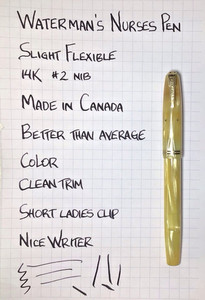 Waterman's Nurses Pen
Slight Flexible
14K #2 nib
Made in Canada
Better than average
Color
Clean trim
Short ladies clip
Nice Writer